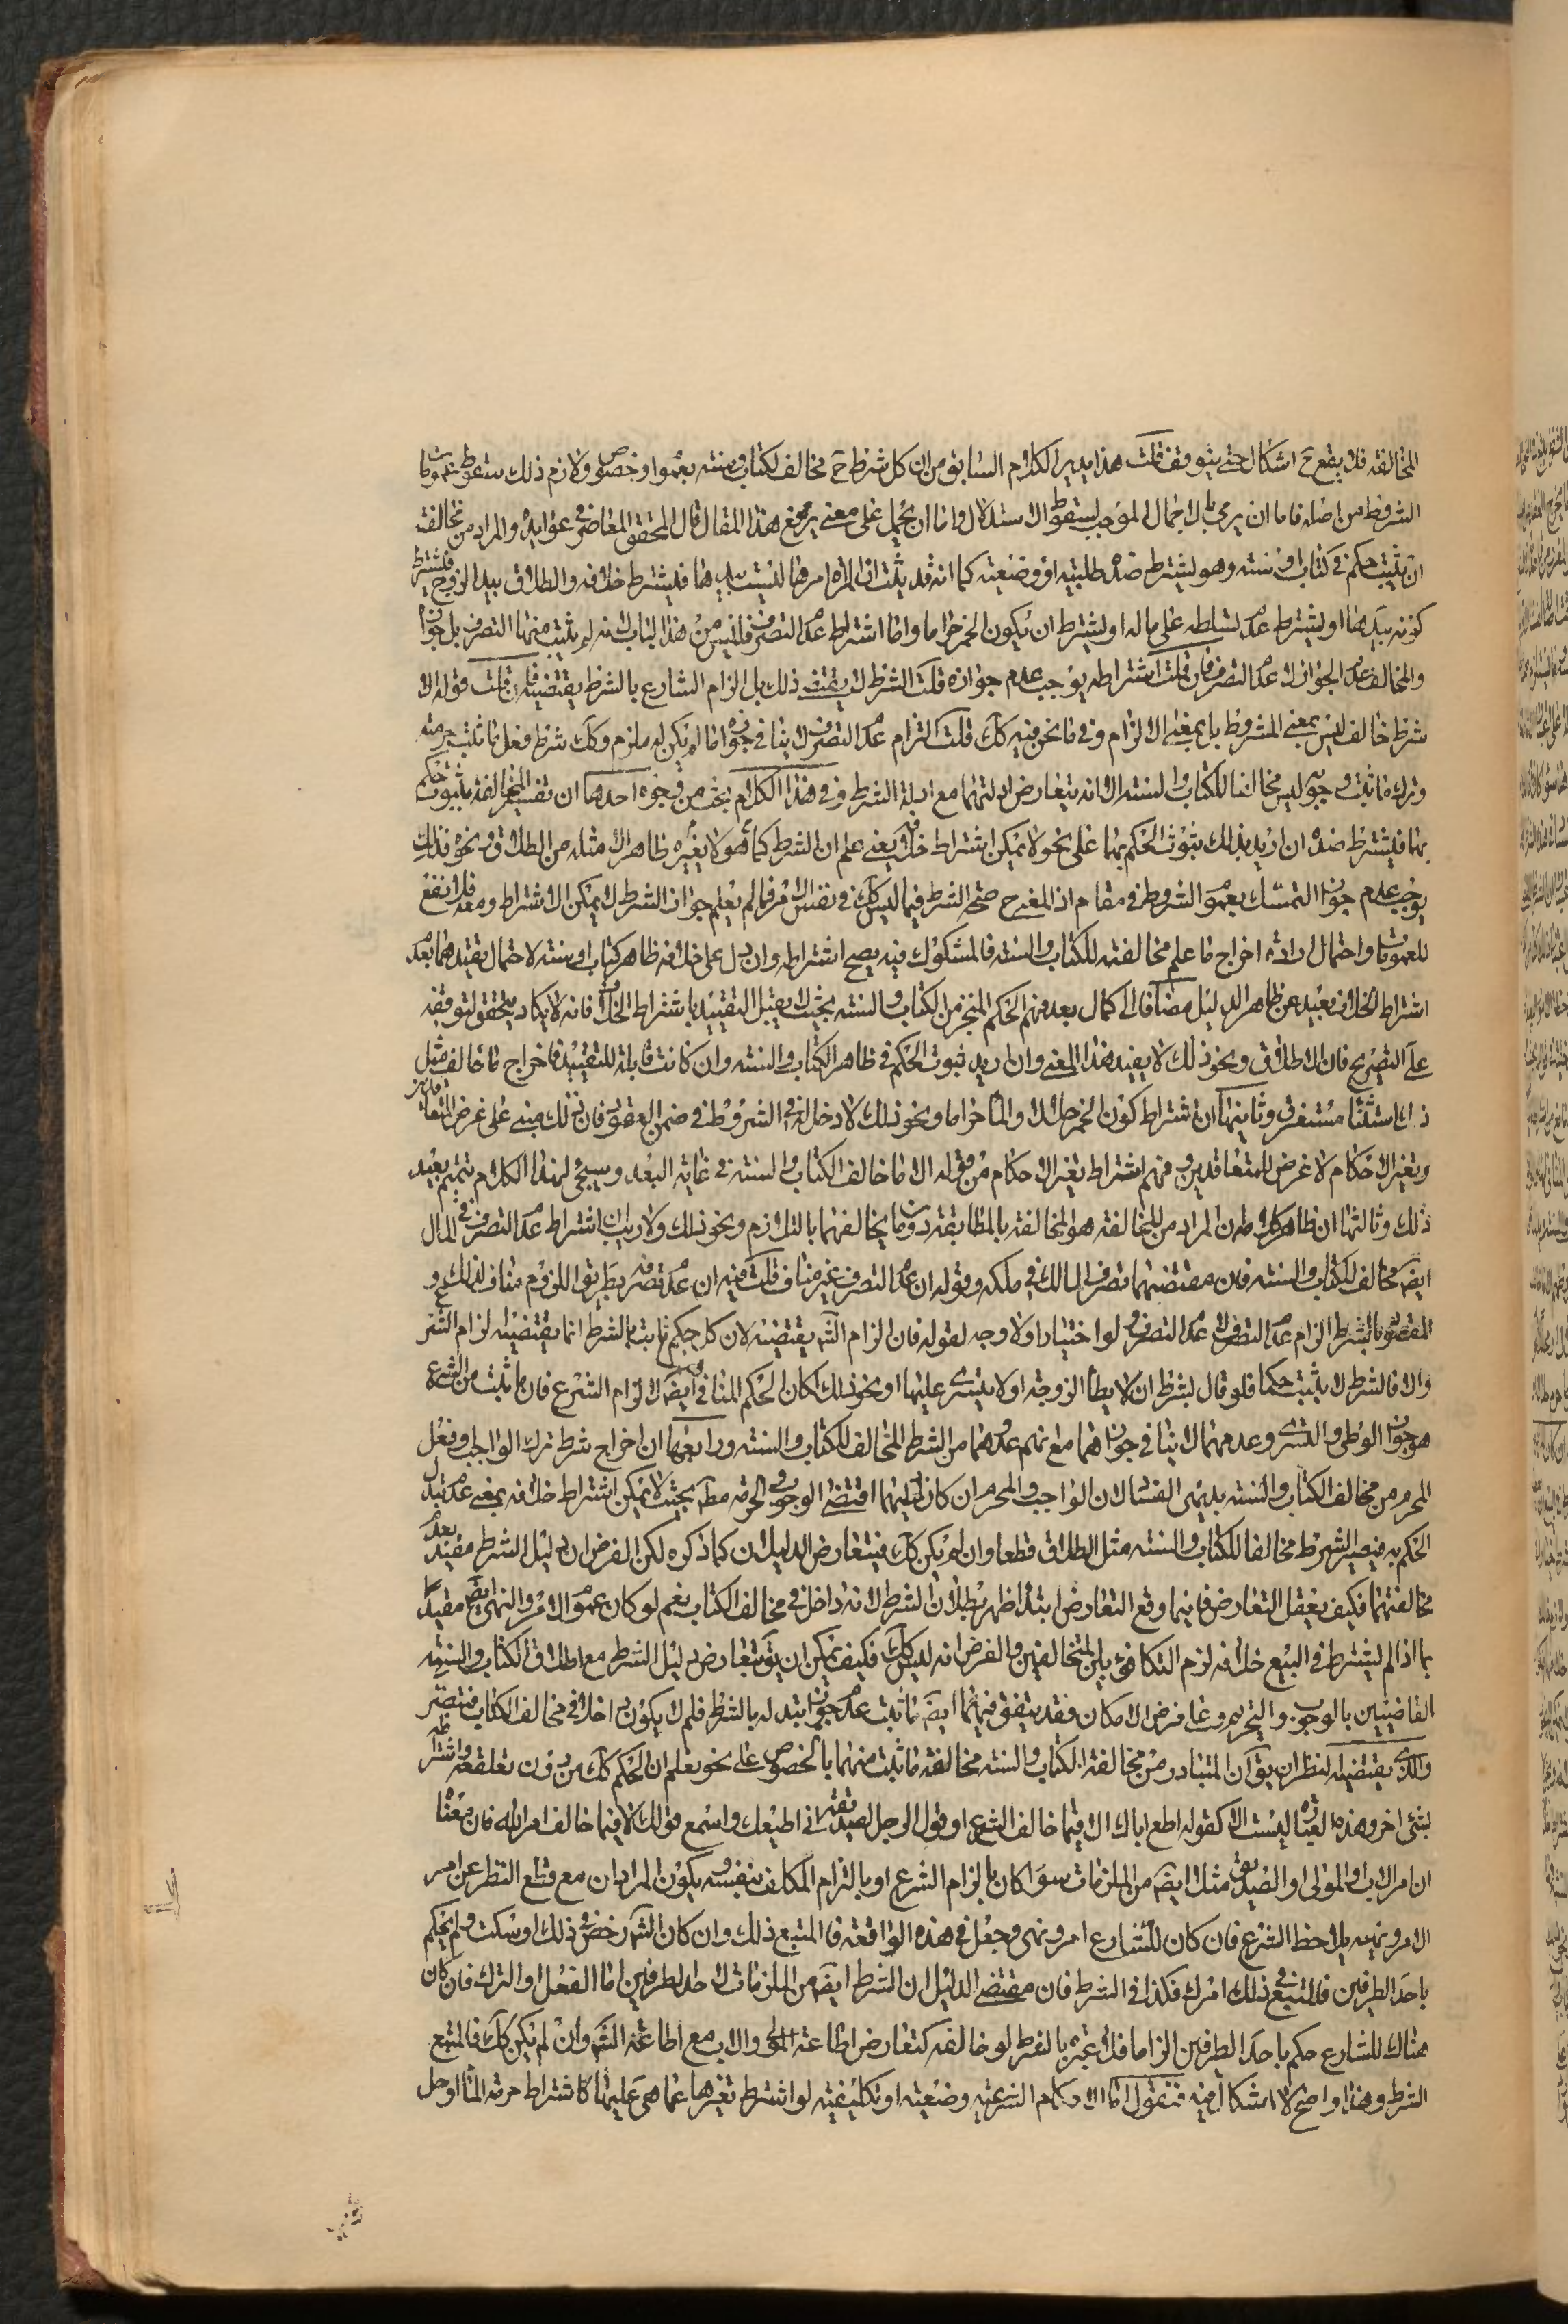 المخالفة فلا يقع ح اشكال حتى يتوقف قلت هذا يدبر الكلام السابق من ان كل شرط ح مخالف لكتاب وسنته بعموم او خصوص ولازم ذلك سقوط عموم
الشرط من اصله فاما ان يرمى بالاجمال الموجب لسقوط الاستدلال واما ان يحمل على معنى يرجع هذا المقال قال المحقق المعاصر في عوايده والمراد من مخالفة
ان يثبت حكم في كتاب او سنته وهو يشترط ضد طلبيته او وضعيته كما انه قد ثبت ان المراة امرها ليست بيدها فيشترط خلافه والطلاق بيد الزوج فيشترط
كونه بيدها او يشترط عدم تسلطه على ماله او يشترط ان يكون الخمر حراما واما اشتراط عدم التصرف فليس من هذا الباب لانه لم يثبت منهما التصرف بل جوازه
والمخالف عدم الجواز لا عدم التصرف فان قلت اشتراطه يوجب عدم جوازه قلت الشرط لا يقتضى ذلك بل الزام الشارع بالشرط يقتضيه فان قلت قوله الا
شرط خالف ليس بمعنى المشروط بل بمعنى الالزام وفي ما نحن فيه كك قلت التزام عدم التصرف لا ينافي جوازه ما لم يكن له ملزم وكك شرط فعل ما ثبت حرمته
وترك ما ثبت وجوبه ليس مخالفا للكتاب والسنته الا انه يتعارض ادلتهما مع ادلة الشرط وفي هذا الكلام بحث من وجوه احدها ان تفسير المخالفة بثبوت حكم
بهما فيشترط ضده ان اريد بذلك ثبوت الحكم بهما على نحو لا يمكن اشتراط خلافه يعنى علم ان الشرط كما هو لا يغيره ظاهرا مثله من الطلاق ونحوه فذلك
يوجب عدم جواز التمسك بعموم الشروط في مقام اذ المفروض صحة الشرط فيما ليس كك في نفس الامر فما لم يعلم جواز الشرط لا يمكن الاشتراط ومعه فلا نفع
للعمومات واحتمال ارادة اخراج ما علم مخالفته للكتاب والسنته فالمشكوك فيه يصح اشتراطه وان دل على خلافه ظاهر كتاب او سنته لاحتمال تقييدهما بعدم
اشتراط الخلاف بعيد عن ظاهر الدليل مضافا الى كمال بعد فهم الحكم المنجز من الكتاب والسنته بحيث لا يقبل التقييد باشتراط الخلاف فانه لا يكاد يتحقق لتوقفه
على التصريح فان الاطلاق ونحو ذلك لا يفيد هذا المعنى وان اريد ثبوت الحكم في ظاهر الكتاب والسنته وان كانت قابلة للتقييد فاخراج ما خالف مثل
ذلك استثناء مستغرق وثانيها ان اشتراط كون الخمر حلالا والماء حراما ونحو ذلك لا دخل له في الشروط في ضمن العقود فان ذلك مبنى على غرض المتعاقدين
وتغير الاحكام لا غرض للمتعاقدين وفهم اشتراط تغير الاحكام من قوله الا ما خالف الكتاب والسنته في غاية البعد وسيجئ لهذا الكلام تتميم بعيد
ذلك وثالثها ان ظاهر كلامه ان المراد من المخالفة هو المخالفة بالمطابقة دون ما يخالفهما بالتلازم ونحو ذلك ولا ريب ان اشتراط عدم التصرف في المال
ايضا مخالف للكتاب والسنته فان مقتضيهما تصرف المالك في ملكه وقوله ان عدم التصرف غير مناف قلت فيه ان عدم تصرفه بطريق اللزوم مناف لذلك و
المقصود بالشرط الزام عدم التصرف لا عدم التصرف ولو اختيارا ولا وجه لقوله فان الزام الشرع يقتضيه لان كل حكم ثابت بالشرط انما يقتضيه لزام الشرع
والا فالشرط لا يثبت حكما فلو قال بشرط ان لا يطأ الزوجة او لا يتسرى عليها او نحو ذلك لكان الحكم المنافي ايضا الزام الشرع فان ما ثبت من الشرع
هو جواز الوطى والتسرى وعدمهما لا ينافي جوازهما مع انهم عدوهما من الشرط المخالف للكتاب والسنته ورابعها ان اخراج شرط ترك الواجب وفعل
المحرم من مخالف الكتاب والسنته بديهى الفساد لان الواجب والمحرم ان كان دليلهما اقتضى الوجوب والحرمة مطلقا بحيث لا يمكن اشتراط خلافه بمعنى عدم تبدل
الحكم به فيصير الشرط مخالفا للكتاب والسنته مثل الطلاق قطعا وان لم يكن كك فيتعارض الدليلان كما ذكره لكن الفرض ان دليل الشرط مقيد بعدم
مخالفتهما فكيف يعقل التعارض فانهما وقع التعارض ابتداء ظهر بطلان الشرط لانه داخل في مخالف الكتاب نعم لو كان عموم الامر والنهى ايضا مقيدا
بما اذا لم يشترط في البيع خلافه لزم التكافؤ بين المتخالفين والفرض انه ليس كك فكيف يمكن ان يتعارض دليل الشرط مع اطلاق الكتاب والسنته
القاضيين بالوجوب والتحريم وعلى فرض الامكان فقد يتفق فيهما ايضا ما ثبت عدم جواز تبدله بالشرط فلم لا يكون داخلا في مخالف الكتاب فتبصر
والذى يقتضيه النظر ان يق ان المتبادر من مخالفة الكتاب والسنته مخالفة ما ثبت منهما بالخصوص على نحو يعلم ان الحكم كك من دون تعلقه واشتراطه
بشئ اخر وهذه العبارة ليست الا كقوله اطع اباك الا فيما خالف الشرع او قول الرجل لصديقه اني اطيعك واسمع قولك الا فيما خالف امر الله فان معناه
ان امر الاب والمولى او الصديق مثلا ايضا من الملزمات سواء كان بالزام الشرع او بالتزام المكلف بنفسه ويكون المراد ان مع قطع النظر عن امر
الامر ونهيه يلاحظ الشرع فان كان للشارع امر ونهى وجعل في هذه الواقعة فالمتبع ذلك وان كان الشرع رخص في ذلك او سكت ولم يحكم
باحد الطرفين فالمتبع في ذلك امرك فكذا في الشرط فان مقتضى الدليل ان الشرط ايضا من الملزمات لاحد الطرفين اما الفعل او الترك فان كان
هناك للشارع حكم باحد الطرفين الزاما فلا عبرة بالشرط لو خالفه كتعارض اطاعة المولى والاب مع اطاعة الشرع وان لم يكن كك فالمتبع
الشرط وهذا واضح لا اشكال فيه فنقول اما الاحكام الشرعية وضعية او تكليفية لو اشترط تغيرها عما هى عليها كاشتراط حرمة الماء او حل